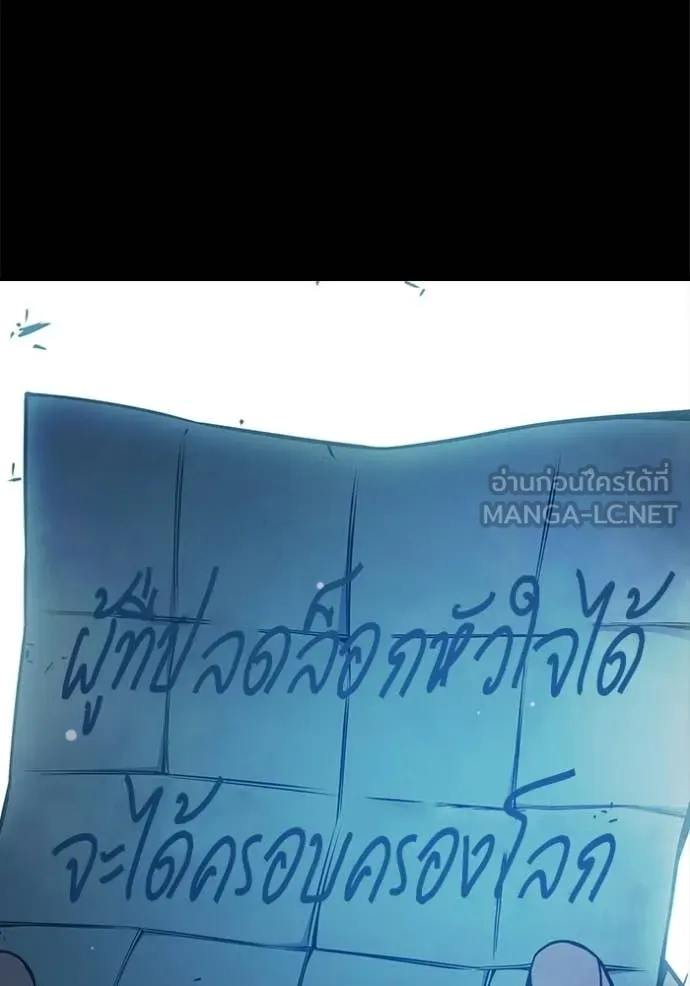 อ่านก่อนใครได้ที่
MANGA-LC.NET
ผู้ที่ปลดล็อกหัวใจได้
จะได้ครอบครองโลก